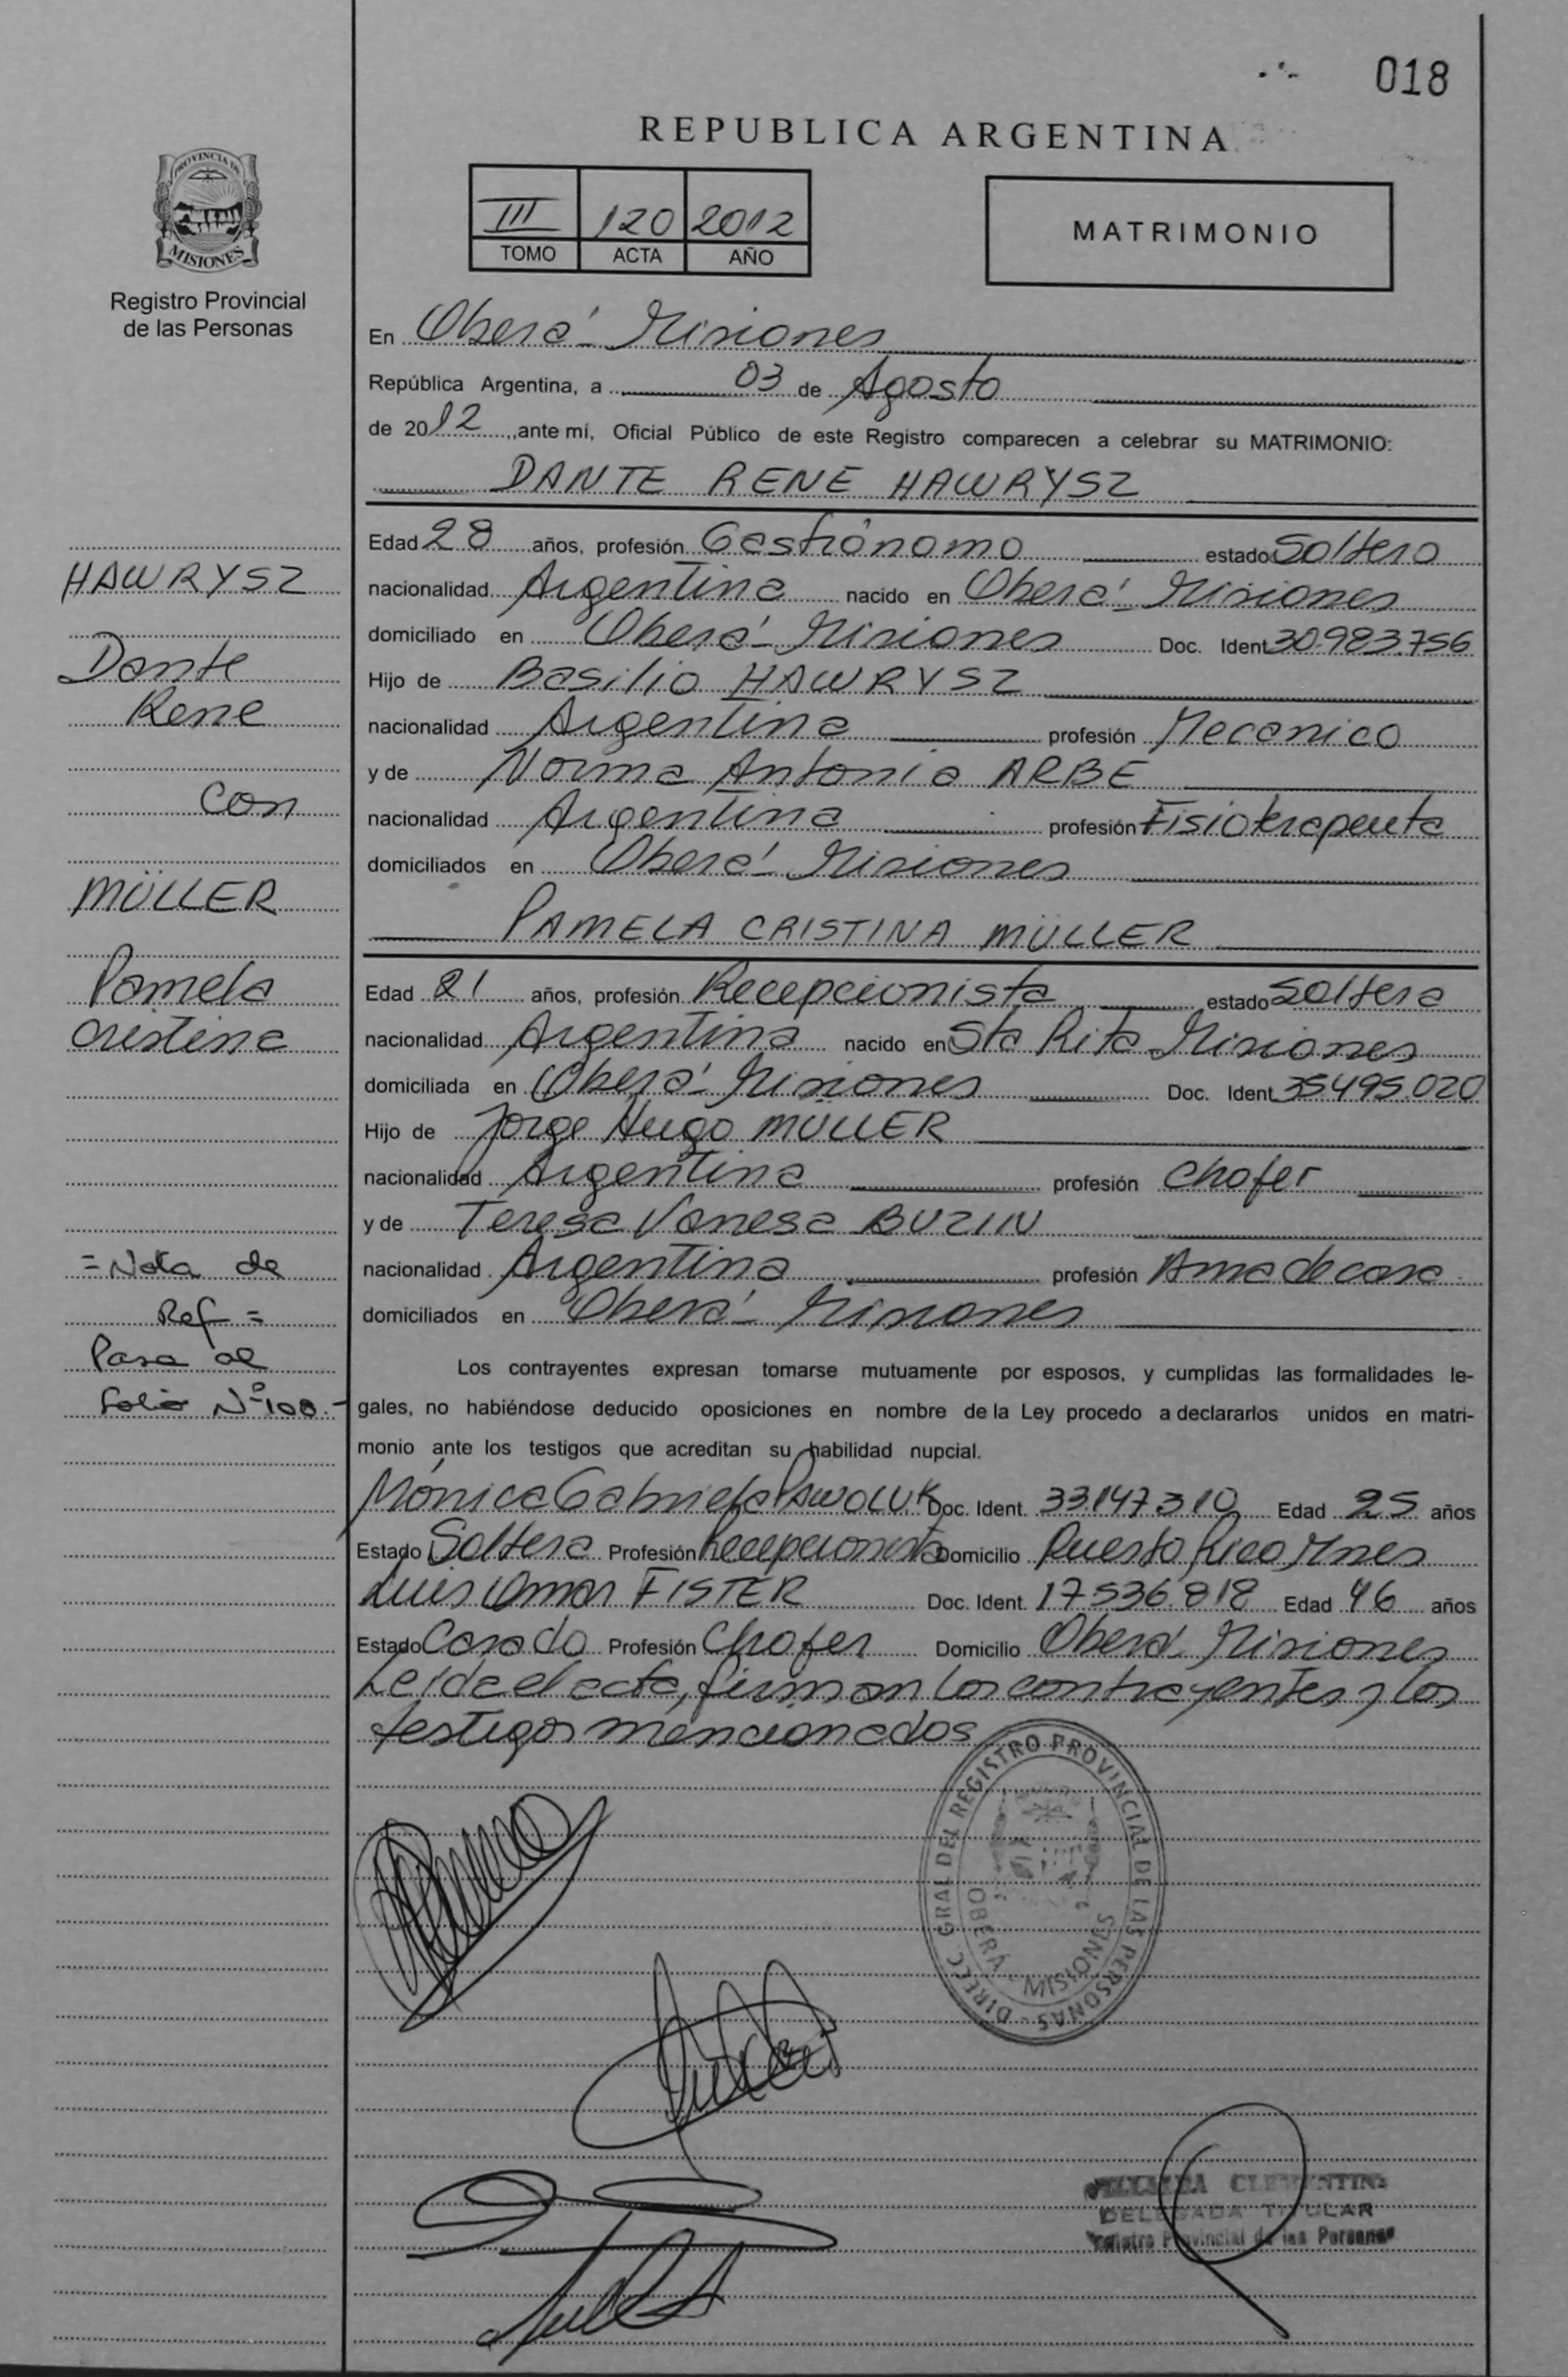 018
REPUBLICA ARGENTINA
III 120 2012
TOMO ACTA AÑO
MATRIMONIO
PROVINCIA DE
MISIONES
Registro Provincial
de las Personas
En Oberá - Misiones
República Argentina, a 03 de Agosto
de 2012, ante mí, Oficial Público de este Registro comparecen a celebrar su MATRIMONIO:
DANTE RENE HAWRYSZ
Edad 28 años, profesión Gastrónomo estado Soltero
nacionalidad Argentina nacido en Oberá - Misiones
domiciliado en Oberá - Misiones Doc. Ident 30.983.756
Hijo de Basilio HAWRYSZ
nacionalidad Argentina profesión Mecanico
y de Norma Antonia ARBE
nacionalidad Argentina profesión Fisioterapeuta
domiciliados en Oberá - Misiones
PAMELA CRISTINA MÜLLER
Edad 21 años, profesión Recepcionista estado Soltera
nacionalidad Argentina nacido en Sta Rita - Misiones
domiciliada en Oberá - Misiones Doc. Ident 35495.020
Hijo de Jorge Hugo MÜLLER
nacionalidad Argentina profesión Chofer
y de Teresa Vanesa BUZIN
nacionalidad Argentina profesión Ama de casa
domiciliados en Oberá - Misiones
Los contrayentes expresan tomarse mutuamente por esposos, y cumplidas las formalidades le-
gales, no habiéndose deducido oposiciones en nombre de la Ley procedo a declararlos unidos en matri-
monio ante los testigos que acreditan su habilidad nupcial.
Mónica Gabriela PAWOLUK Doc. Ident. 33.147.310 Edad 25 años
Estado Soltera Profesión Recepcionista Domicilio Puerto Rico, Mnes
Luis Omar FISTER Doc. Ident. 17.536.818 Edad 46 años
Estado Casado Profesión Chofer Domicilio Oberá Misiones
Leída el acta, firman los contrayentes y los
testigos mencionados
HAWRYSZ
Dante
Rene
con
MÜLLER
Pamela
Cristina
=Nota de
Ref =
Pasa al
Folio Nº 108.-
DIREC. GRAL DEL REGISTRO PROVINCIAL DE LAS PERSONAS -
OBERÁ - MISIONES
DELEGADA TITULAR
Registro Provincial de las Personas